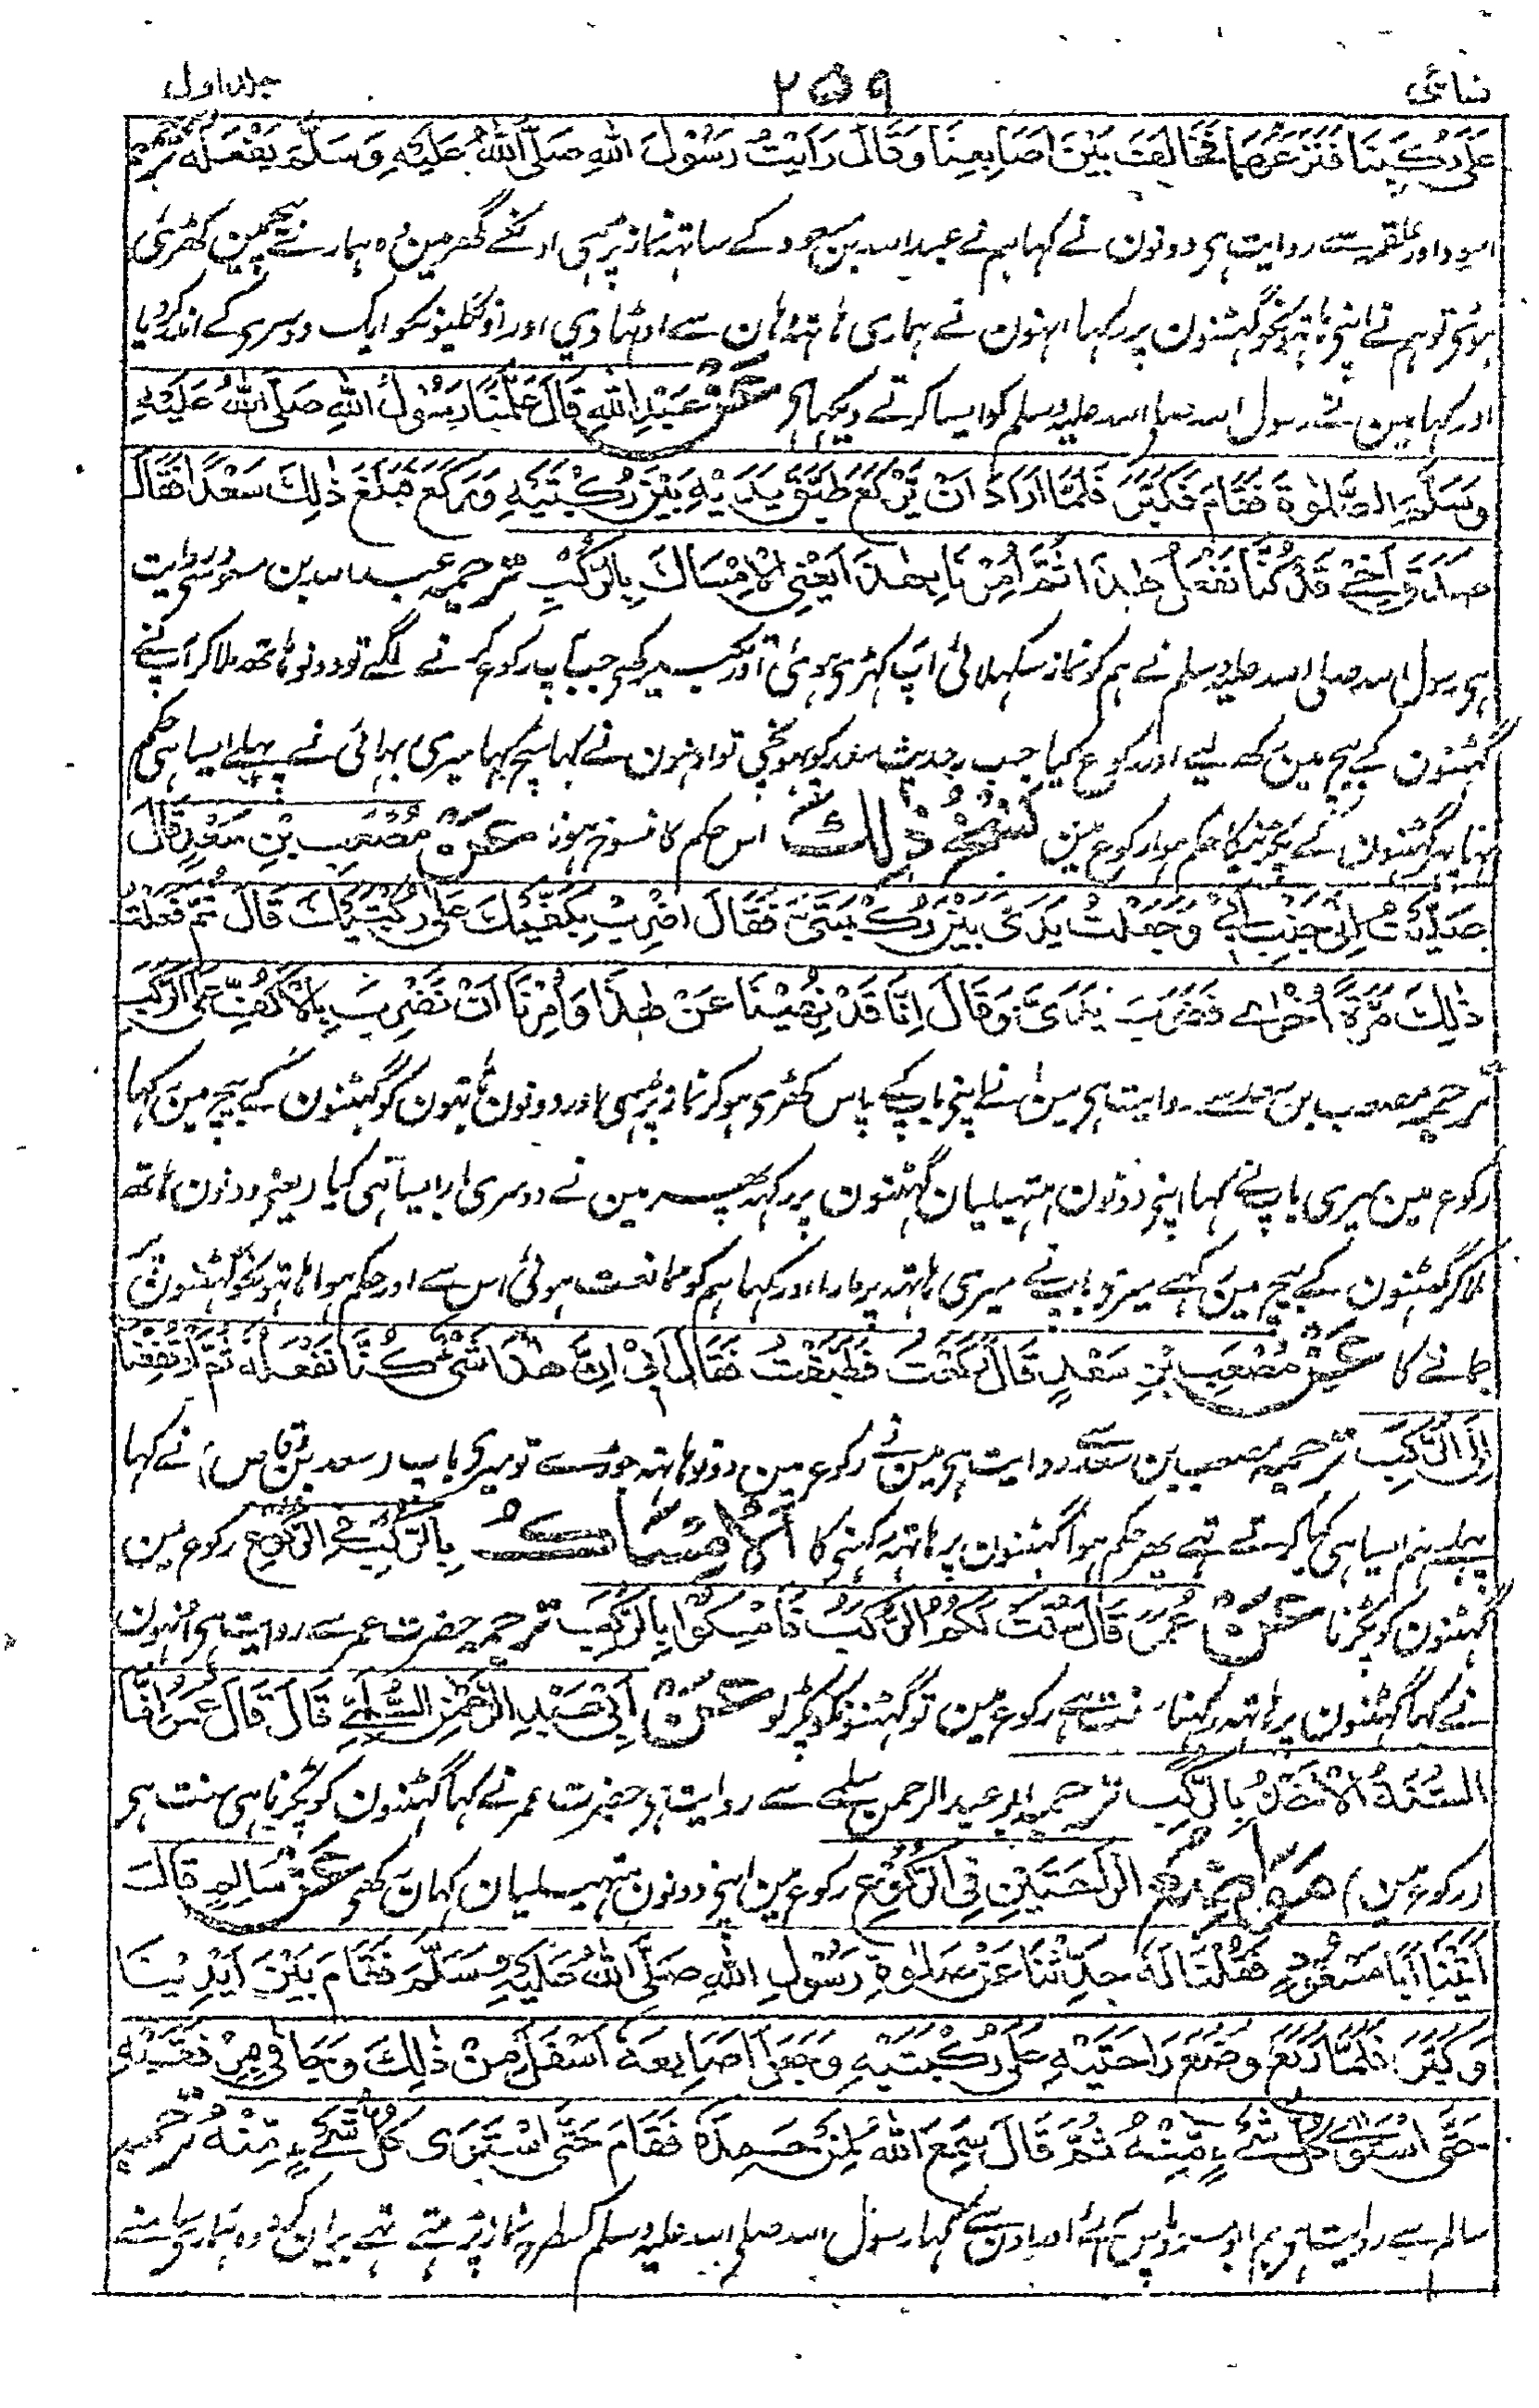 نسائی ۲۵۹ جلد اول
عَلٰى رُكَبِنَا فَنَزَعَهُمَا فَخَالَفَ بَيْنَ اَصَابِعِنَا وَقَالَ رَاَيْتُ رَسُوْلَ اللهِ صَلَّى اللهُ عَلَيْهِ وَسَلَّمَ يَفْعَلُهُ ترجمہ
اسود اور علقمہ سے روایت ہی دونون نے کہا ہم نے عبداللہ بن مسعود کے ساتھہ نماز پڑہی اونکے گھر مین وہ ہمارے بیچ مین کھڑی
ہوئی تو ہم نے اپنی ہاتہونکو گہٹنون پر رکہا انہون نے ہماری ہاتہہ وہان سے اوٹہا دی اور اونگلیونکو ایک دوسری کے اندر کر دیا
اور کہا مین نے رسول اللہ صلی اللہ علیہ وسلم کو ایسا کرتے دیکہا ہی عَنْ عَبْدِ اللهِ قَالَ عَلَّمَنَا رَسُوْلُ اللهِ صَلَّى اللهُ عَلَيْهِ
وَسَلَّمَ الصَّلٰوةَ فَقَامَ فَكَبَّرَ فَلَمَّا اَرَادَ اَنْ يَّرْكَعَ طَبَّقَ يَدَيْهِ بَيْنَ رُكْبَتَيْهِ وَرَكَعَ فَبَلَغَ ذٰلِكَ سَعْدًا فَقَالَ
صَدَقَ اَخِيْ قَدْ كُنَّا نَفْعَلُ هٰذَا ثُمَّ اُمِرْنَا بِهٰذَا يَعْنِى الْاِمْسَاكَ بِالرُّكَبِ ترجمہ عبداللہ بن مسعود سی روایت
ہی رسول اللہ صلی اللہ علیہ وسلم نے ہم کو نماز سکہلائی آپ کہڑی ہوئی اور تکبیر کہی جب آپ رکوع کرنے لگے تو دونو ہاتھ ملا کر اپنے
گہٹنون کے بیچ مین رکھ لیے اور رکوع کیا جب یہ حدیث سعد کو پہونچی تو اونہون نے کہا سچ کہا میری بہائی نے پہلے ایسا ہی حکم
تہا پہر گہٹنون کے پکڑنیکا حکم ہوا رکوع مین نَسْخُ ذٰلِكَ اس حکم کا منسوخ ہونا عَنْ مُصْعَبِ بْنِ سَعْدٍ قَالَ
صَلَّيْتُ اِلٰى جَنْبِ اَبِيْ وَجَعَلْتُ يَدَىَّ بَيْنَ رُكْبَتَىَّ فَقَالَ اضْرِبْ بِكَفَّيْكَ عَلٰى رُكْبَتَيْكَ قَالَ ثُمَّ فَعَلْتُ
ذٰلِكَ مَرَّةً اُخْرٰى فَضَرَبَ يَدَىَّ وَقَالَ اِنَّا قَدْ نُهِيْنَا عَنْ هٰذَا وَاُمِرْنَا اَنْ نَضْرِبَ بِالْاَكُفِّ عَلَى الرُّكَبِ
ترجمہ مصعب بن سعد سے روایت ہی مین نے اپنی باپ کے پاس کھڑی ہو کر نماز پڑہی اور دونون ہاتہون کو گہٹنون کے بیچ مین کہا
رکوع مین میری باپ نے کہا اپنی دونون ہتہیلیان گہٹنون پر رکہہ پھر مین نے دوسری بار ایسا ہی کیا (یعنی دونون ہاتھ
ملا کر گہٹنون کے بیچ مین رکہے میری باپ نے میری ہاتہہ پر مارا اور کہا ہم کو ممانعت ہوئی اس سے اور حکم ہوا ہاتہونکو گہٹنون پر
جمانے کا عَنْ مُصْعَبِ بْنِ سَعْدٍ قَالَ رَكَعْتُ فَطَبَّقْتُ فَقَالَ اَبِىْ اِنَّ هٰذَا شَىْءٌ كُنَّا نَفْعَلُهُ ثُمَّ ارْتَفَعْنَا
اِلَى الرُّكَبِ ترجمہ مصعب بن سعد سے روایت ہی مین نے رکوع مین دونو ہاتہہ جوڑے تو میری باپ (سعد بن وقاص) نے کہا
پہلے ہم ایسا ہی کیا کرتے تہے پھر حکم ہوا گہٹنون پر ہاتہہ رکہنی کا اَلْاِمْسَاكُ بِالرُّكَبِ فِى الرُّكُوْعِ رکوع مین
گہٹنون کو پکڑنا عَنْ عُمَرَ قَالَ سُنَّتْ لَكُمُ الرُّكَبُ فَاَمْسِكُوْا بِالرُّكَبِ ترجمہ حضرت عمر سے روایت ہی انہون
نے کہا گہٹنون پر ہاتہہ رکہنا سنت ہے رکوع مین تو گہٹنونکو پکڑ لو عَنْ اَبِىْ عَبْدِ الرَّحْمٰنِ السُّلَمِىِّ قَالَ قَالَ عُمَرُ اِنَّمَا
السُّنَّةُ الْاَخْذُ بِالرُّكَبِ ترجمہ ابو عبدالرحمن سلمے سے روایت ہی حضرت عمر نے کہا گہٹنون کو پکڑنا ہی سنت ہی
(رکوع مین) مَوَاضِعُ الرَّاحَتَيْنِ فِى الرُّكُوْعِ رکوع مین اپنی دونون ہتہیلیان کہان رکھی عَنْ سَالِمٍ قَالَ
اَتَيْنَا اَبَا مَسْعُوْدٍ فَقُلْنَا لَهُ حَدِّثْنَا عَنْ صَلٰوةِ رَسُوْلِ اللهِ صَلَّى اللهُ عَلَيْهِ وَسَلَّمَ فَقَامَ بَيْنَ اَيْدِيْنَا
وَكَبَّرَ فَلَمَّا رَكَعَ وَضَعَ رَاحَتَيْهِ عَلٰى رُكْبَتَيْهِ وَجَعَلَ اَصَابِعَهُ اَسْفَلَ مِنْ ذٰلِكَ وَجَافٰى مِرْفَقَيْهِ
حَتَّى اسْتَوٰى كُلُّ شَىْءٍ مِّنْهُ ثُمَّ قَالَ سَمِعَ اللهُ لِمَنْ حَمِدَهُ فَقَامَ حَتَّى اسْتَوٰى كُلُّ شَىْءٍ مِّنْهُ ترجمہ
سالم سے روایت ہی ہم ابو مسعود پاس آئے اور اون سے کہا رسول اللہ صلی اللہ علیہ وسلم کسطرح نماز پڑہتے تہے بیان کرو وہ ہماری سامنے